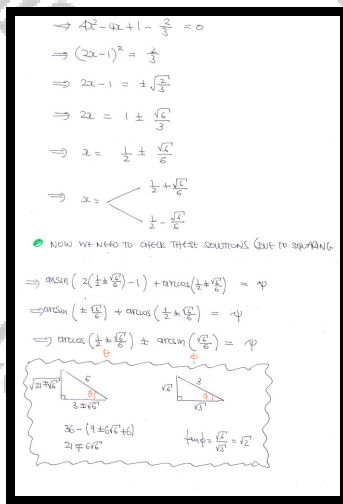 ⇒ 4x² - 4x + 1 - 2/3 = 0
⇒ (2x-1)² = 2/3
⇒ 2x - 1 = ± √(2/3)
⇒ 2x = 1 ± √6/3
⇒ x = 1/2 ± √6/6
⇒ x = < 1/2 + √6/6
1/2 - √6/6
NOW WE NEED TO CHECK THESE SOLUTIONS (DUE TO SQUARING
⇒ arcsin ( 2(1/2 ± √6/6) - 1 ) + arccos (1/2 ± √6/6) = ψ
⇒ arcsin (± √6/6) + arccos (1/2 ± √6/6) = ψ
⇒ arccos (1/2 ± √6/6) ± arcsin (√6/6) = ψ
θ φ
6 3
θ √6 φ
3 ± √6 √3
36 - (9 ± 6√6 + 6)
21 ∓ 6√6
tanφ = √6/√3 = √2